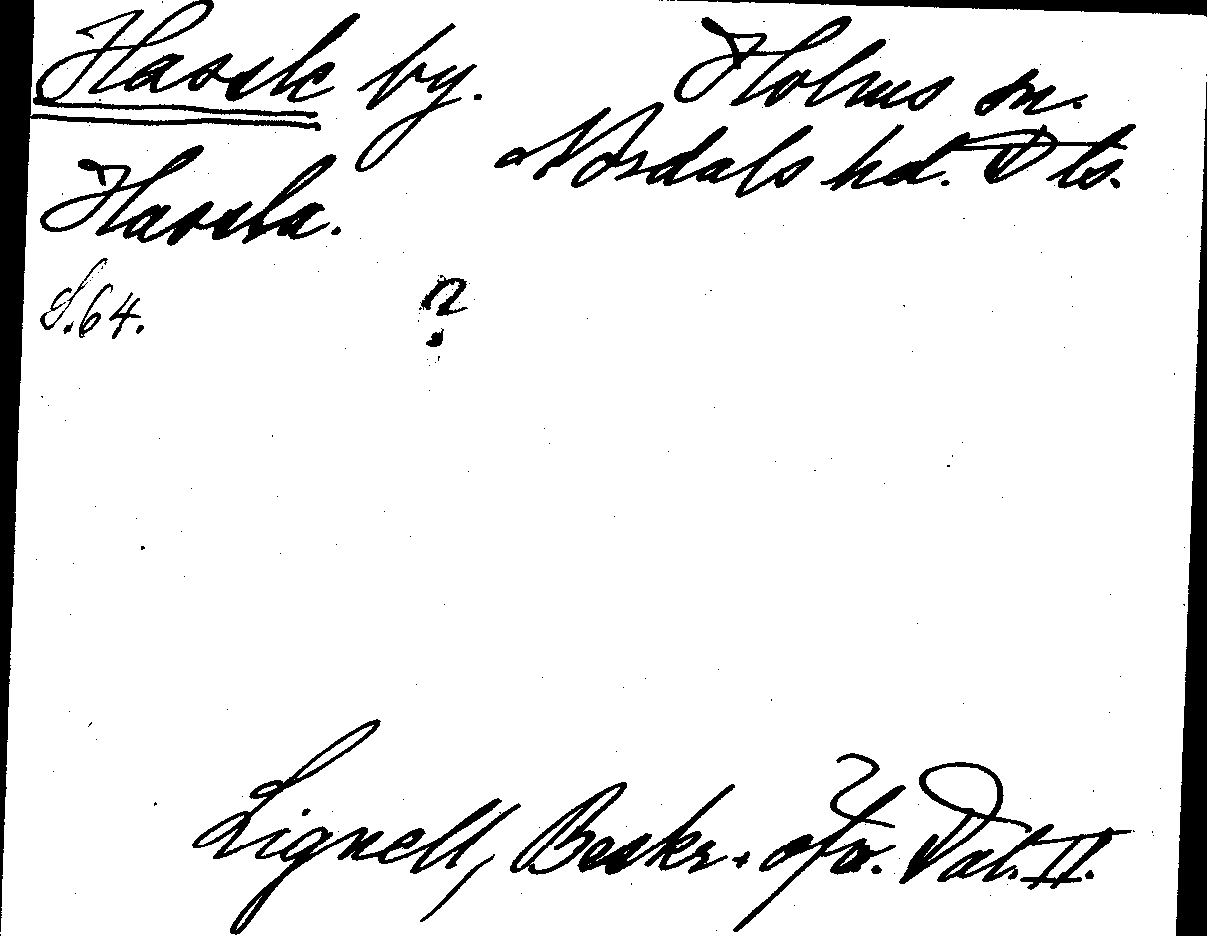 Hassle by. Holms sn.
Nordals hd. Dls.
Hassla.
S. 64. ?
Lignell, Beskr. öfv. Dal. II.